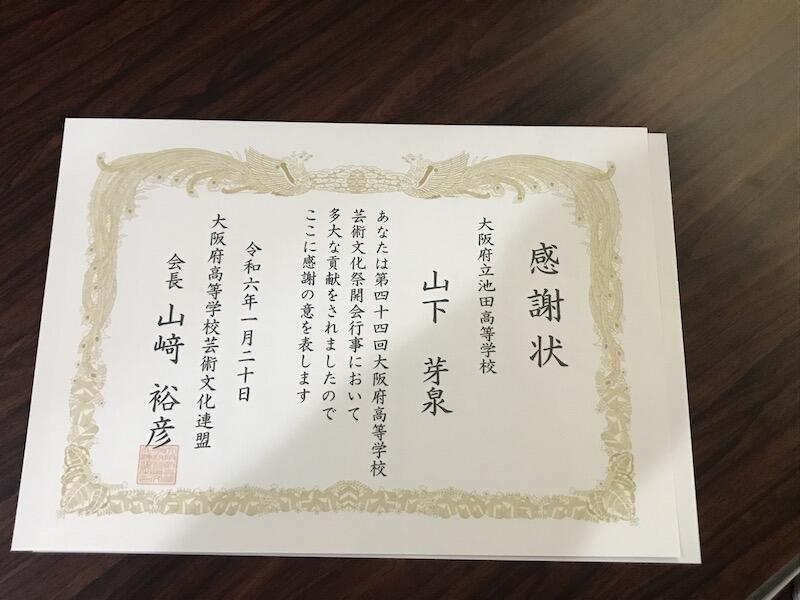 感謝状
大阪府立池田高等学校
山下 芽泉
あなたは第四十四回大阪府高等学校
芸術文化祭開会行事において
多大な貢献をされましたので
ここに感謝の意を表します
令和六年一月二十日
大阪府高等学校芸術文化連盟
会長 山﨑 裕彦